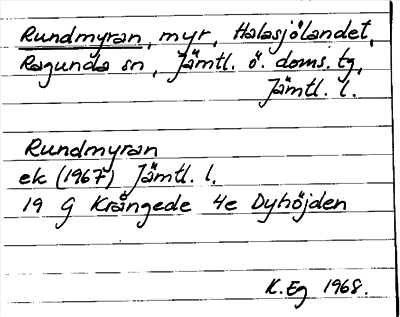 Rundmyran, myr, Halasjölandet,
Ragunda sn, Jämtl. ö. doms. tg,
Jämtl. l.
Rundmyran
ek (1967) Jämtl. l.
19 G Krångede 4e Dyhöjden
K. Eg 1968.